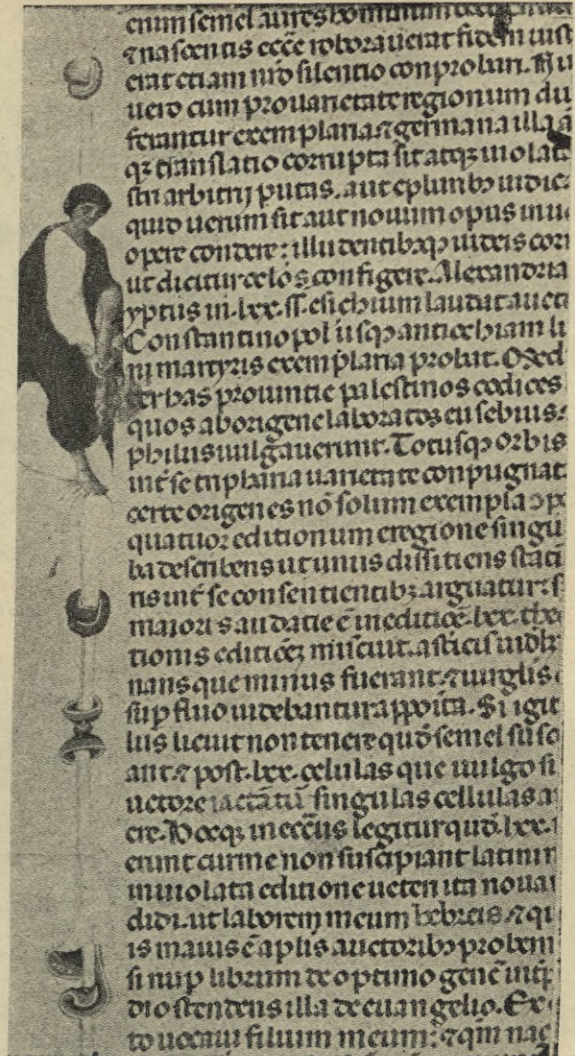 enim semel aures hominum
⁊ nascentis ecc̄e roborauerat fidem iust
erat etiam nr̄o silentio conprobari. Nu
uero cum pro uarietate regionum diu
ferantur exemplaria ⁊ germana illa ā
q; translatio corrupta sit atq; uiolata
stri arbitrij putas. aut e plurib; iudic
quid uerum sit aut nouum opus in ue
opere condere: illudentibꝰq; iudeis cor
ut dicitur oc̄los configere. Alexandria
yptus in .lxx. ss. esichium laudat auct
Constantinopoli usq; antiochiam li
ni martyris exemplaria probat. Med
ter has prouintie palestinos codices
quos ab origene laboratos eusebius
philus uulgauerunt. Totusq; orbis
int̄ se triphana uarietate conpugnat
certe origenes nō solum exempla ɔpo
quatuor editionum e regione singu
ba describens ut unus dissitiens stati
ris int̄ se consentientib; arguatur: s
maioris audatie ē in editiōe .lxx. the
tionis editiōeȝ miscuit. asticis uidel
nans que minus fuerant. ⁊ uirglis
sup̄fluo uidebantur apposita. Si igit
liis licuit non tenere quō semel suso
ant. ⁊ post .lxx. celulas que uulgo si
uctore iactātū singulas cellulas a
ere. Hocq; in ecc̄liis legitur quō .lxx.
erunt cur me non suscipiant latini
inuiolata editione ueteri ita noua
didi. ut laborem meum hebreis. ⁊ qu
is maius ē ap̄lis auctoribꝰ probem
si nup̄ librum de optimo gen̄e int̄p
di ostendens illa de euangelio. Ex
to uocaui filium meum: ⁊ qm̄ naz